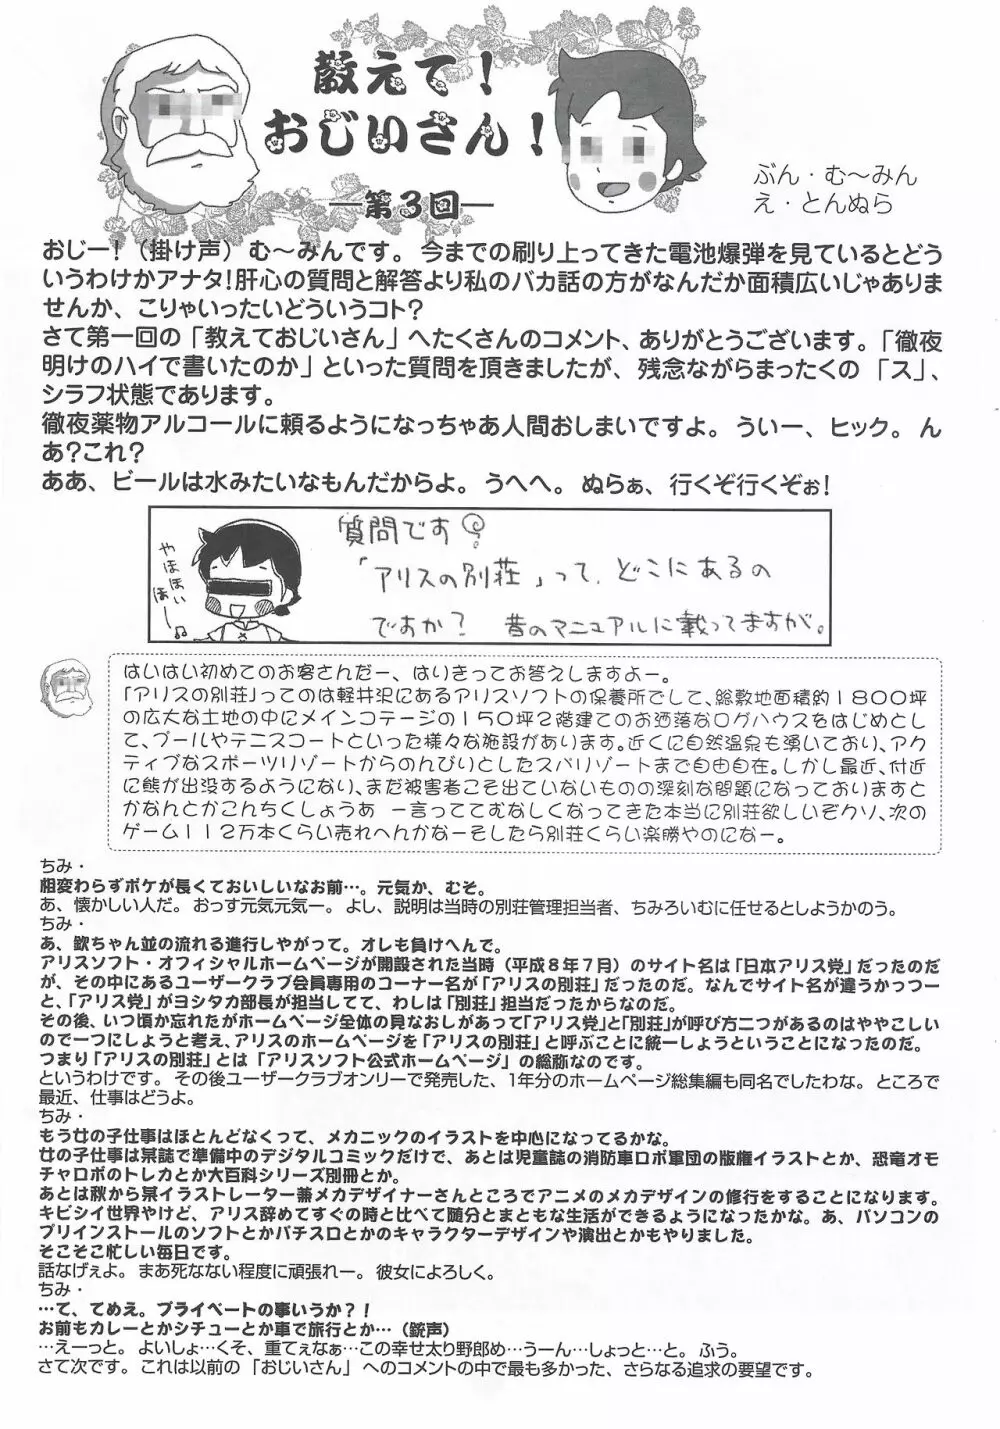 教えて！
おじいさん！
―第3回―
ぶん・む～みん
え・とんぬら
おじー！（掛け声）む～みんです。今までの刷り上ってきた電池爆弾を見ているとどう
いうわけかアナタ！肝心の質問と解答より私のバカ話の方がなんだか面積広いじゃありま
せんか、こりゃいったいどういうコト？
さて第一回の「教えておじいさん」へたくさんのコメント、ありがとうございます。「徹夜
明けのハイで書いたのか」といった質問を頂きましたが、残念ながらまったくの「ス」、
シラフ状態であります。
徹夜薬物アルコールに頼るようになっちゃあ人間おしまいですよ。うぃー、ヒック。ん
あ？これ？
ああ、ビールは水みたいなもんだからよ。うへへ。ぬらぁ、行くぞ行くぞぉ！
やほほぃ
ほー♪
質問です？
「アリスの別荘」って、どこにあるの
ですか？ 昔のマニュアルに載ってますが。
はいはい初めてのお客さんだー、はいきってお答えしますよー。
「アリスの別荘」ってのは軽井沢にあるアリスソフトの保養所でして、総敷地面積約1800坪
の広大な土地の中にメインコテージの150坪2階建てのお洒落なログハウスをはじめとし
て、プールやテニスコートといった様々な施設があります。近くに自然温泉も湧いており、アク
ティブなスポーツリゾートからのんびりとしたスパリゾートまで自由自在。しかし最近、付近
に熊が出没するようになり、まだ被害者こそ出ていないものの深刻な問題になっておりますと
かなんとかこんちくしょうあ　一言っててむなしくなってきた本当に別荘欲しいぞクソ、次の
ゲーム112万本くらい売れへんかなーそしたら別荘くらい楽勝やのになー。
ちみ・
相変わらずボケが長くておいしいなお前…。元気か、むそ。
あ、懐かしい人だ。おっす元気元気ー。よし、説明は当時の別荘管理担当者、ちみろいむに任せるとしようかのう。
ちみ・
あ、欽ちゃん並の流れる進行しやがって。オレも負けへんで。
アリスソフト・オフィシャルホームページが開設された当時（平成8年7月）のサイト名は「日本アリス党」だったのだ
が、その中にあるユーザークラブ会員専用のコーナー名が「アリスの別荘」だったのだ。なんでサイト名が違うかっつー
と、「アリス党」がヨシタカ部長が担当してて、わしは「別荘」担当だったからなのだ。
その後、いつ頃か忘れたがホームページ全体の見なおしがあって「アリス党」と「別荘」が呼び方二つがあるのはややこしい
ので一つにしようと考え、アリスのホームページを「アリスの別荘」と呼ぶことに統一しようということになったのだ。
つまり「アリスの別荘」とは「アリスソフト公式ホームページ」の総称なのです。
というわけです。その後ユーザークラブオンリーで発売した、1年分のホームページ総集編も同名でしたわな。ところで
最近、仕事はどうよ。
ちみ・
もう女の子仕事はほとんどなくって、メカニックのイラストを中心になってるかな。
女の子仕事は某誌で準備中のデジタルコミックだけで、あとは児童誌の消防車ロボ軍団の版権イラストとか、恐竜オモ
チャロボのトレカとか大百科シリーズ別冊とか。
あとは秋から某イラストレーター兼メカデザイナーさんところでアニメのメカデザインの修行をすることになります。
キビシイ世界やけど、アリス辞めてすぐの時と比べて随分とまともな生活ができるようになったかな。あ、パソコンの
プリインストールのソフトとかパチスロとかのキャラクターデザインや演出とかもやりました。
そこそこ忙しい毎日です。
話なげぇよ。まあ死なない程度に頑張れー。彼女によろしく。
ちみ・
…て、てめえ。プライベートの事いうか？！
お前もカレーとかシチューとか車で旅行とか…（銃声）
…えーっと。よいしょ…くそ、重てぇなぁ…この幸せ太り野郎め…うーん…しょっと…と。ふう。
さて次です。これは以前の「おじいさん」へのコメントの中で最も多かった、さらなる追求の要望です。